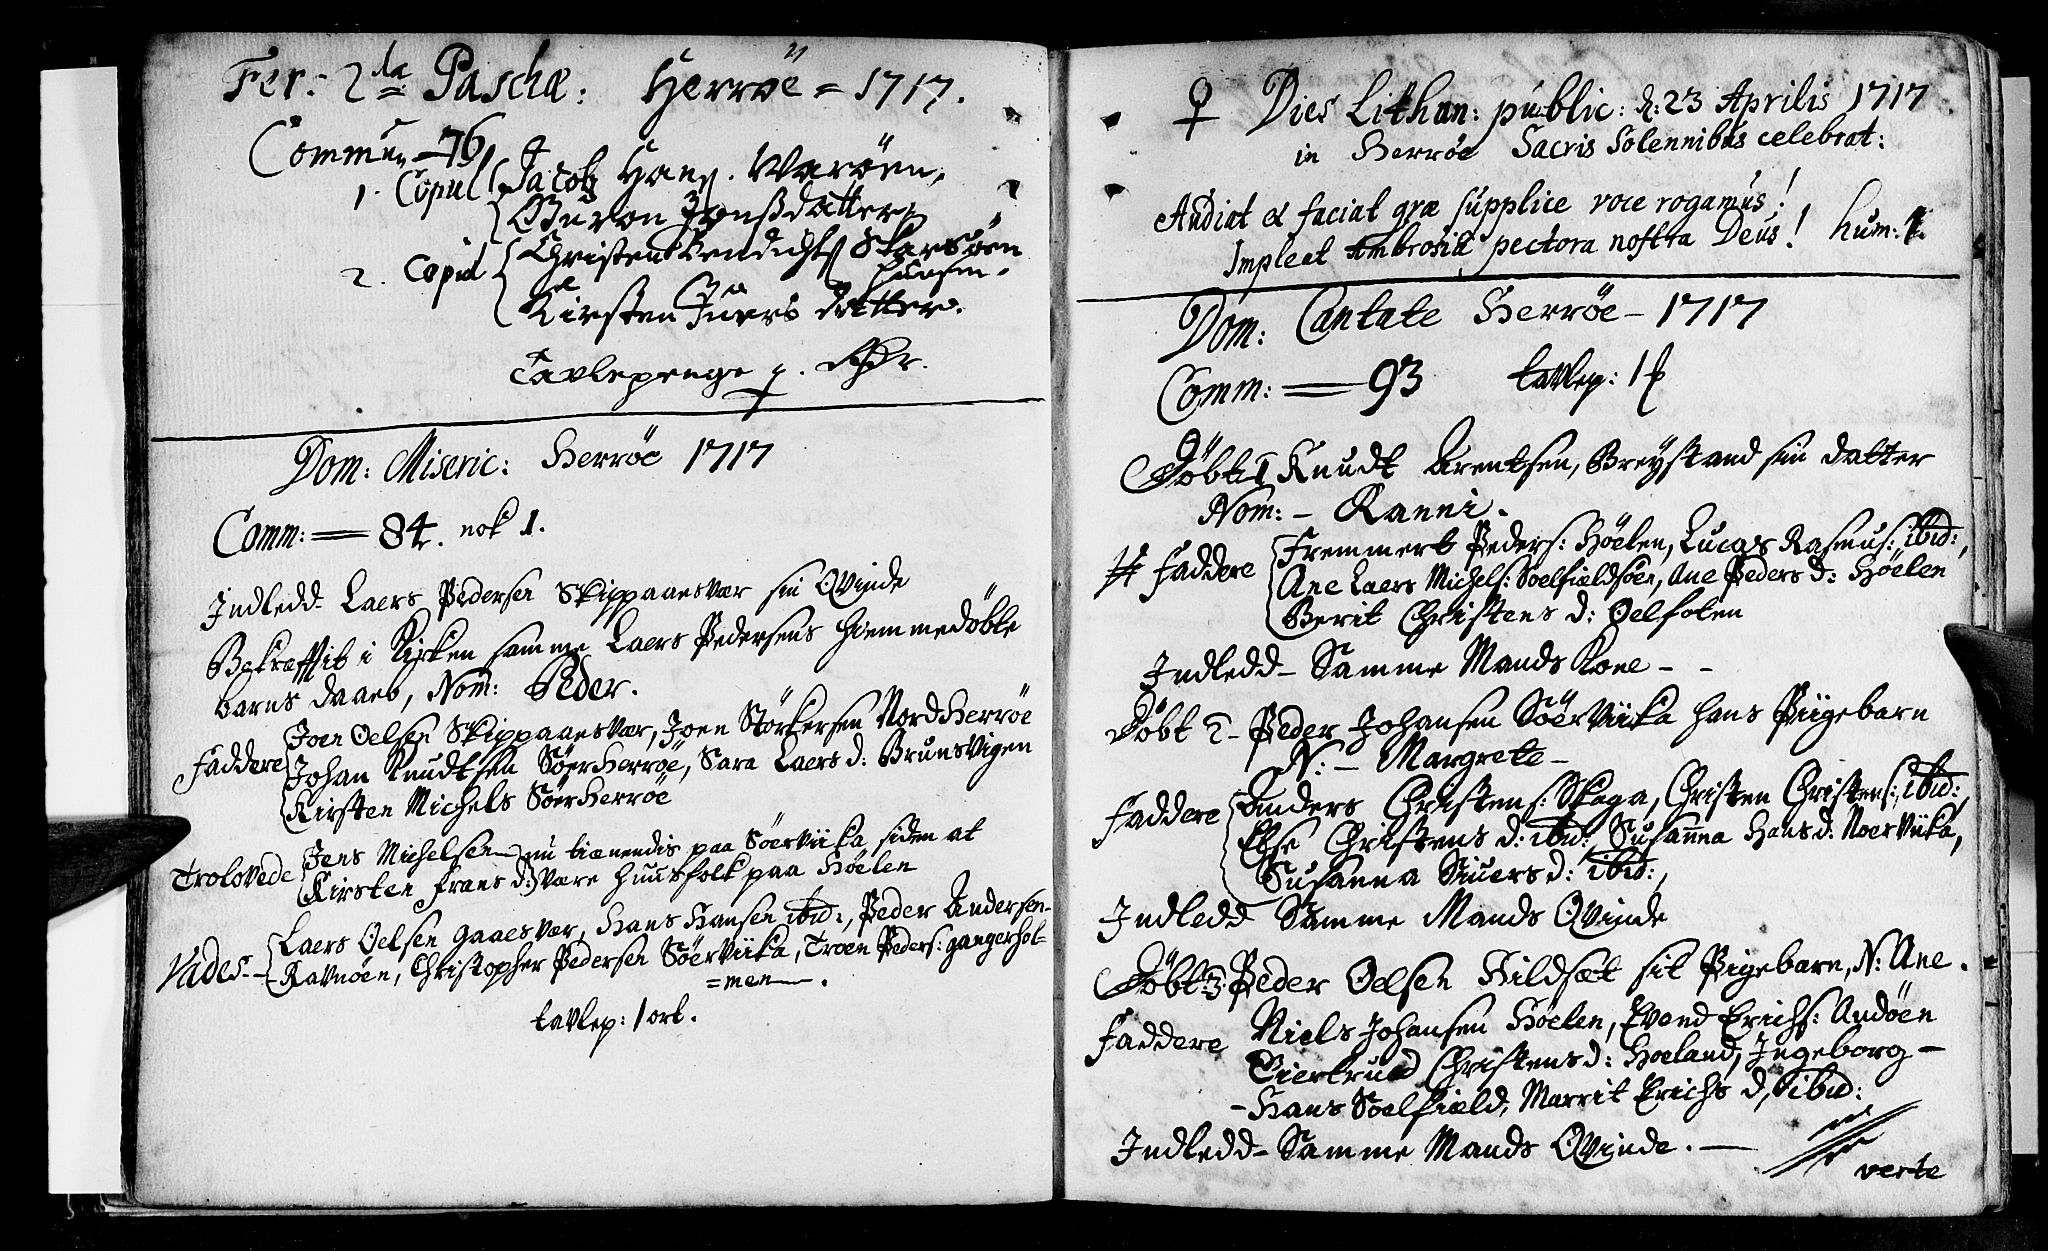 Fer: 2da Paschæ: Herröe = 1717.
Commun 76
1. Copul Jacob Hans. Waröen,
Guron Jonsdatter
2. Copul Christen Bendichts Skarsöen
huusm.
Kirsten Juers datter.
Tavlepenge
Dom: Miseric: Herröe 1717
Comm: = 84. nok 1.
Indledd Laers Pedersen Skippaaesvær sin Qvinde
Bekræfftit i Kirken samme Laers Pedersens hiemmedöbte
barns daaeb, Nom: Peder.
Faddere Joen Oelsen Skippaaesvær, Joen Störkersen Nordherröe
Johan Knudtsen Söerherröe, Sara Laers d: Brunsvigen
Kirsten Michels Söerherröe
Trolovede Jens Michelsen nu tienendis paa Söerviika, siden at
Kirsten Frans d: være huusfolk paa Höelen
Vades Laers Oelsen Gaaesvær, Hans Hansen ibid:, Peder Andersen
Ravnöen, Christopher Pedersen Söerviika, Troen Peders: Gangerhol-
=men.
tavlep: 1 ort.
♀ Dies Lithan: public: d: 23 Aprilis 1717
in Herröe Sacris Solennibus celebrat:
Audiat et faciat græ supplice voce rogamus!
Impleat Ambrosiâ pectora nostra Deus! hum: 1.
Dom: Cantate Herröe - 1717
Comm: = 93 tavlep: 1
Döbt 1 Knudt Arentsen, Breystand sin datter
Nom: - Ranni.
Faddere Fremmert Peders: Höelen, Lucas Rasmus: ibid:,
Ane Laers Michels: Soelfieldsöen, Ane Peders d: Höelen
Berit Christens d: Oelfoten
Indledd - Samme Mands Kone - -
Döbt 2 - Peder Johansen Söerviika hans Piigebarn
N: - Margrete -
Faddere Anders Christens: Skaga, Christen Christens:, ibid:,
Else Christens d: ibid: Susanna Hans d: Noerviika,
Susanna Siuers d: ibid:,
Indledd Samme Mands Qvinde
Döbt 3. Peder Oelsen Hildsæt sit Pigebarn, N: Ane.
Faddere Niels Johansen Höelen, Evend Erichs: Andöen
Giertrued Christens d: Hoeland, Ingeborg -
- Hans Soelfield, Marrit Erichs d, ibid:
Indledd - Samme Mands Qvinde. -
verte